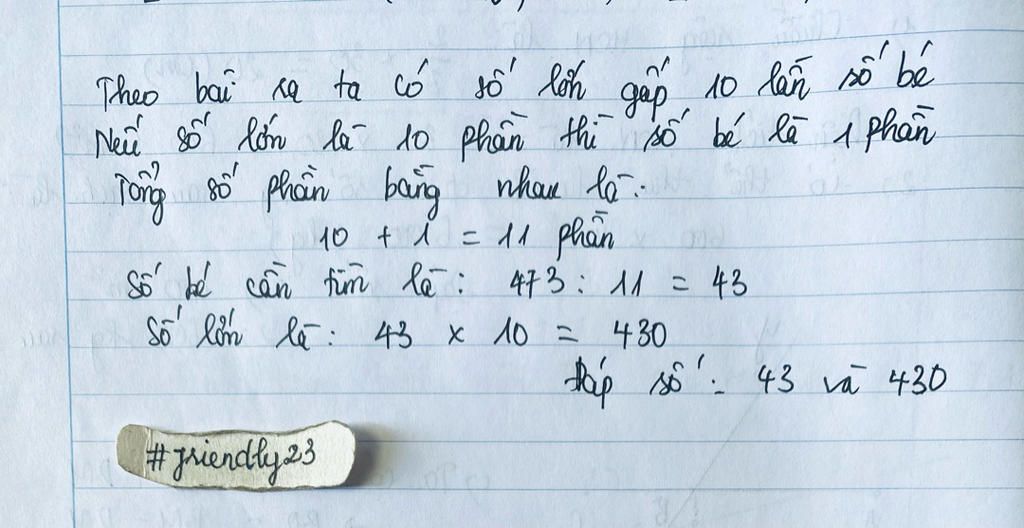 Theo bài ra ta có số lớn gấp 10 lần số bé
Nếu số lớn là 10 phần thì số bé là 1 phần
Tổng số phần bằng nhau là:
10 + 1 = 11 phần
Số bé cần tìm là: 473 : 11 = 43
Số lớn là: 43 x 10 = 430
Đáp số: 43 và 430
#friendly23